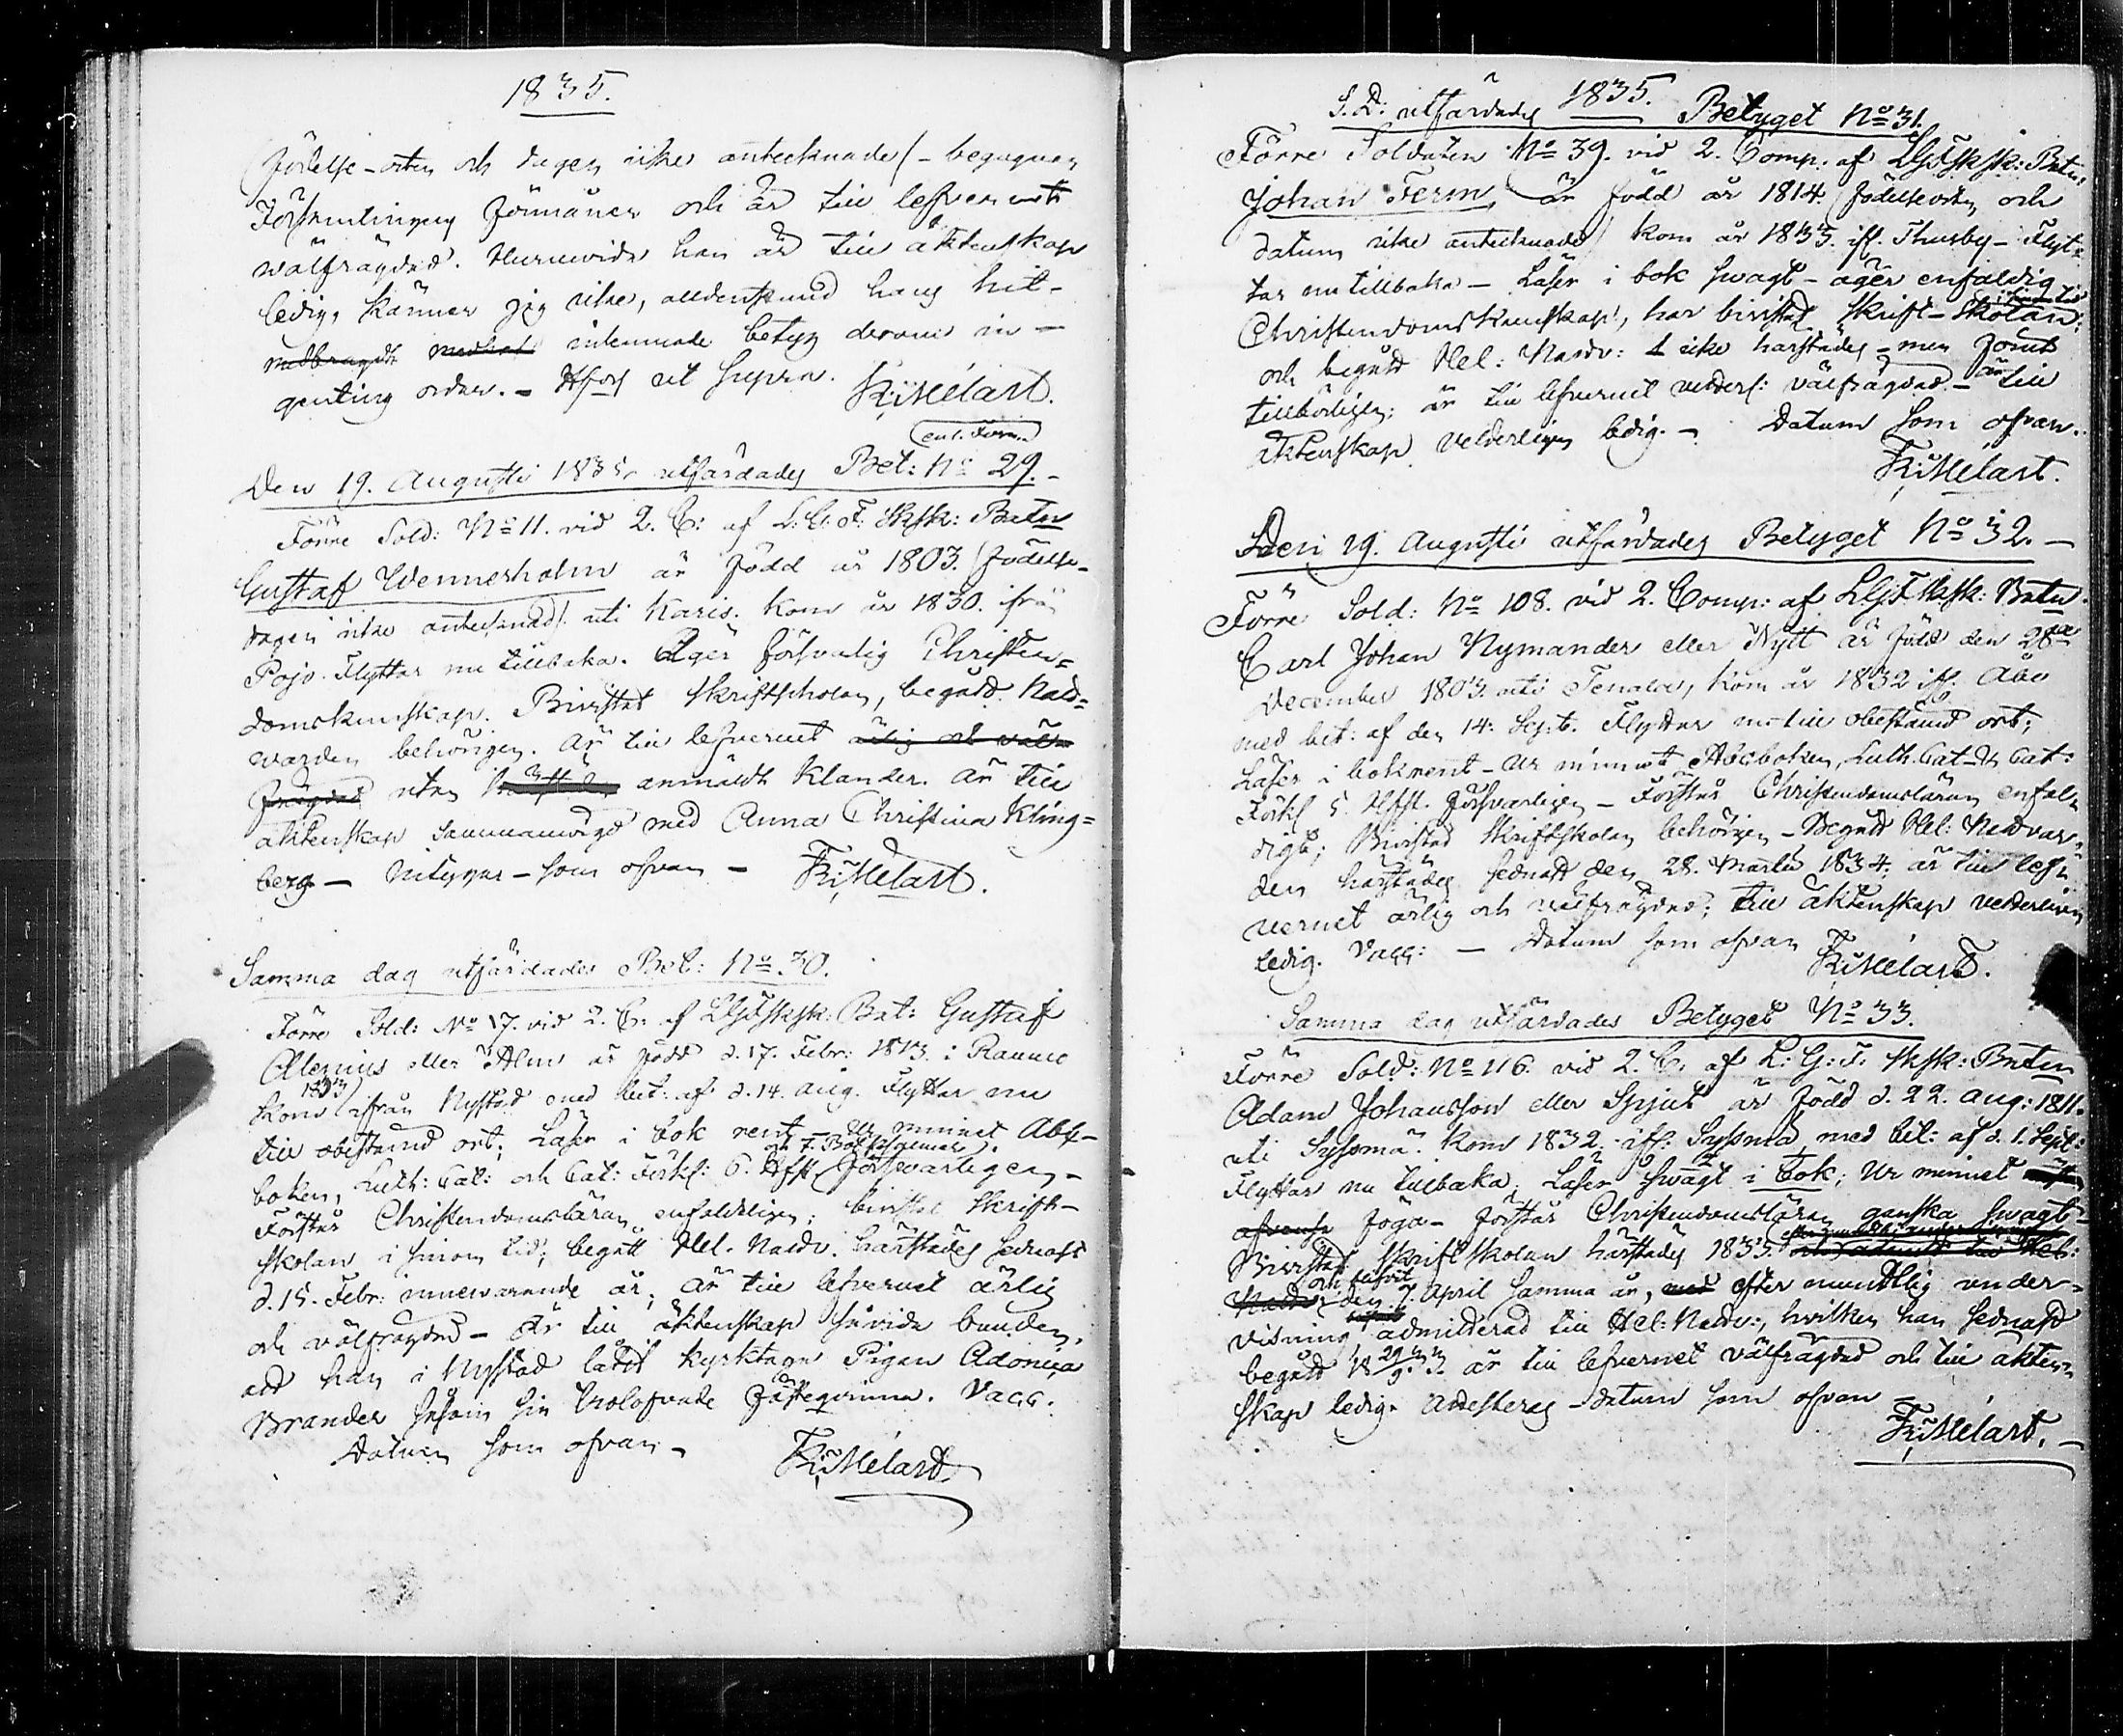 1835.
födelse-orten och dagen icke antecknade/ - begagnar
Församlingens förmåner och är till lefvernet
wälfrägdad. Huruvida han är till äktenskap
ledig, känner jag icke, alldenstund hans hit-
medbragdt intemnade betyg derom in-
genting ordar. - H:fors ut supra. Fr: Melart.
enl. Form.
Den 19. Augusti 1835 utfärdades Bet: No 29. -
Förre Sold: No 11. vid 2. C: af L: G: F: Sksk: Batn
Gustaf Wennerholm är född år 1803. /födelse-
dagen icke antecknad/ uti Karis. Kom år 1830. ifrån
Pojo. Flyttar nu tillbaka. Äger försvarlig Christen=
domskunskap. Bivistat Skriftscholan, begådt Natt=
varden behörigen. Är till lefvernet ärlig och väl=
frägdad utan anmäldt klander. Är till
äktenskap sammanvigd med Anna Christina Kling=
berg - vitsnar - som ofvan - Fr: Melart.
Samma dag utfärdades Bet: No 30.
Förre Sold: No 17. vid 2. C: af LGF Sksk: Bat: Gustaf
Alenius eller Alm är född d. 17. Febr: 1813. i Raumo
1833
Kom ifrån Nystad med bet: af d. 14. Aug. Flyttar nu
till obestämd ort; Läser i bok rent - ur minnet Abc-
och 7. Botpsalmer
boken, Luth: Cat: och Cat: Förkl: 6. Hfst försvarligen -
Förstår Christendomsläran enfaldeligen; bivistat Skrift-
skolan i sinom tid; begått Hel. Nattv. härstädes sednast
d. 15. Febr: innewarande år; är till lefvernet ärlig
och välfrägdad - Är till äktenskap såvida bunden,
att han i Nystad låtit kyrktaga Pigan Adonica
Brander såsom sin trolofvade fästeqvinna. Vagg.
Datum som ofvan - Fr: Melart
1835.
S. D: utfärdades Betyget No 31.
Förre Soldaten No 39. vid 2. Comp: af LGF Sksk: Batn
Johan Ferm, är född år 1814. /födelseorten och
datum icke antecknade/ kom år 1833. ifr. Thusby - Flyt=
tar nu tillbaka - Läser i bok swagt - äger enfaldig
i sinom tid
Christendomskunskap, har bivistat Skrift-Skolan:
och begådt Hel: Nattv: 1 icke härstädes - men förut
tillbörligen; är till lefvernet vetterl: välfrägdad - är till
äktenskap vetterligen ledig. - Datum som ofvan.
Fr: Melart.
Den 19. Augusti utfärdades Betyget No 32. -
Förre Sold: No 108. vid 2. Comp: af LGF Sksk: Batn
Carl Johan Nymander eller Nytt är född den 28de
December 1803. uti Tenala, kom år 1832 ifr. Åbo
med bet: af den 14: Sept. Flyttar nu till obestämd ort;
Läser i bok rent - Ur minnet Abcboken, Luth. Cat. & Cat:
Förkl 5. Hfst. försvarligen - Förstår Christendomsläran enfal=
digt; Bivistad Skriftskolan behörigen - Begådt Hel: Nattvar=
den härstädes sednast den 28. Martii 1834. är till lef=
vernet ärlig och välfrägdad; till äktenskap vetterligen
ledig. Vagg: - Datum som ofvan Fr: Melart.
Samma dag utfärdades Betyget No 33.
Förre Sold: No 116. vid 2. C. af L: G: F. Sksk: Batn
Adam Johansson eller Spjut är född d. 22. Aug: 1811.
uti Sysmä. Kom 1832. ifr. Sysmä med bet: af d. 1. Sept:
Flyttar nu tillbaka. Läser swagt i bok; Ur minnet
föga - förstår Christendomsläran ganska swagt -
Bivistat Skriftskolan härstädes 1833. och admitt till Hel:
och blifvit
Nattv: den 7. April samma år, med efter mundtlig under-
visning, admitterad till Hel: Nattv:, hvilken han sednast
begådt 18 29/9. 33. är till lefvernet välfrägdad och till äkten-
skap ledig. Attesteras - datum som ofvan
Fr: Melart. -